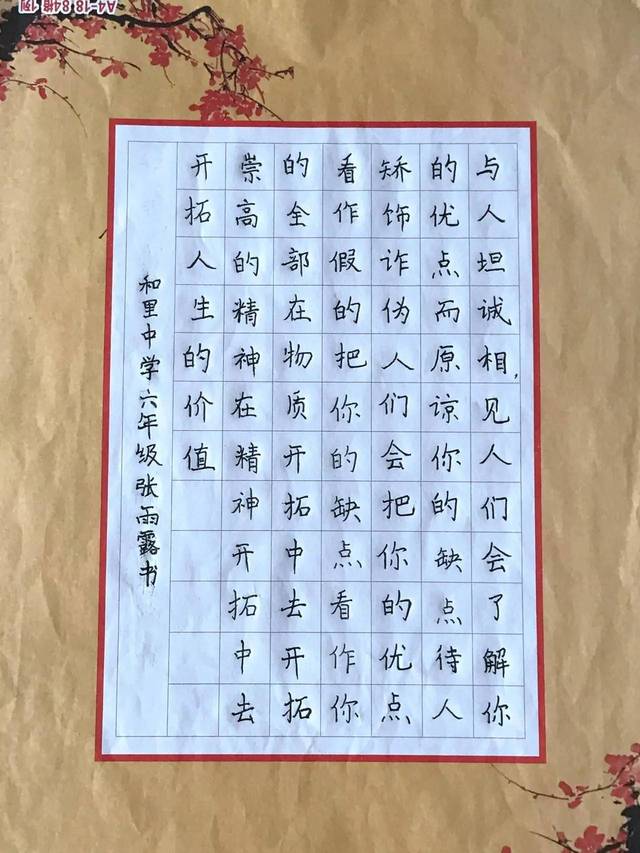 A4-18 84格 1列
与人坦诚相,见人们会了解你
的优点而原谅你的缺点待人
矫饰诈伪人们会把你的优点
看作假的把你的缺点看作你
的全部在物质开拓中去开拓
崇高的精神在精神开拓中去
开拓人生的价值
和里中学六年级张雨露书